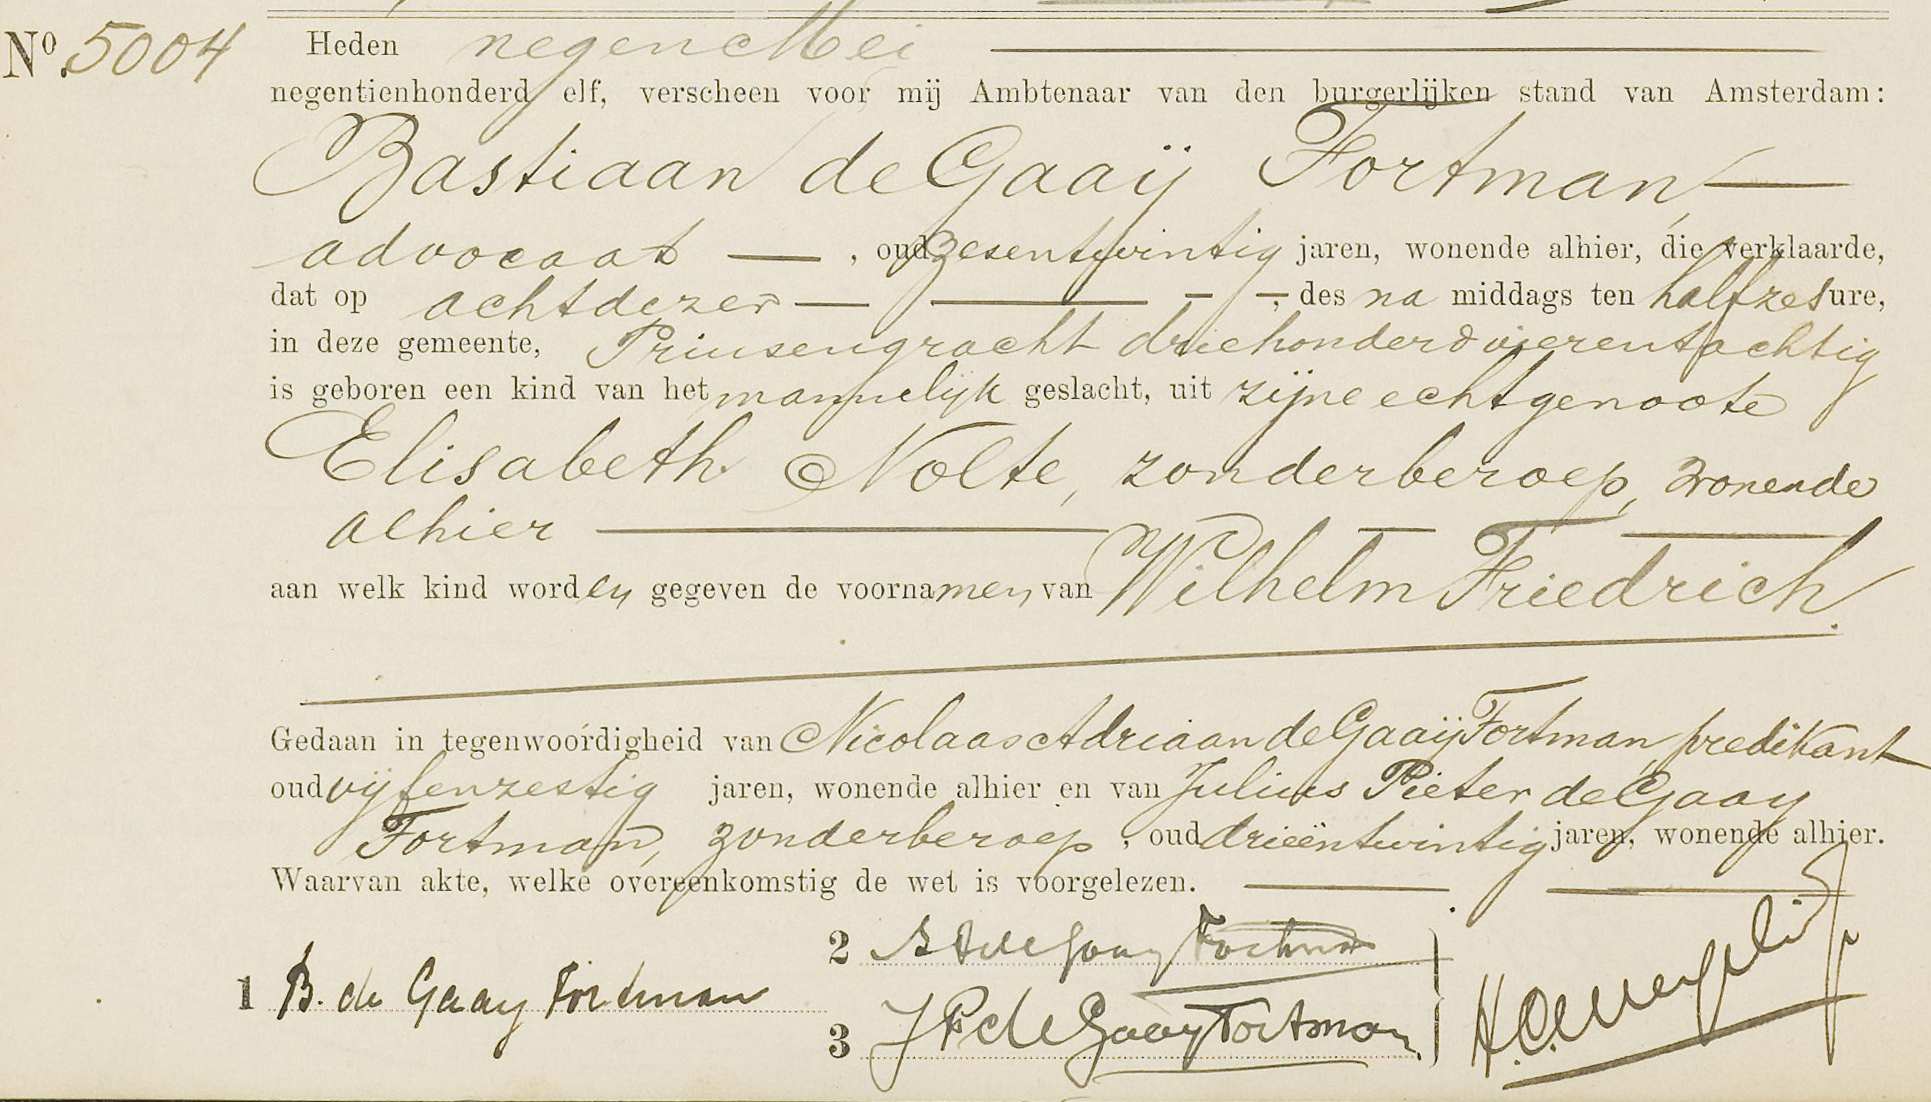 No. 5004
Heden negen Mei
negentienhonderd elf, verscheen voor mij Ambtenaar van den burgerlijken stand van Amsterdam:
Bastiaan de Gaaij Fortman,
advocaat, oud zesentwintig jaren, wonende alhier, die verklaarde,
dat op acht dezer, des na middags ten half zes ure,
in deze gemeente, Prinsengracht driehonderd vierentachtig
is geboren een kind van het mannelijk geslacht, uit zijne echtgenoote
Elisabeth Nolte, zonder beroep, wonende
alhier
aan welk kind worden gegeven de voornamen van Wilhelm Friedrich.
Gedaan in tegenwoordigheid van Nicolaas Adriaan de Gaaij Fortman, predikant
oud vijfenzestig jaren, wonende alhier en van Julius Pieter de Gaay
Fortman, zonder beroep, oud drieëntwintig jaren, wonende alhier.
Waarvan akte, welke overeenkomstig de wet is voorgelezen.
1 B. de Gaay Fortman
2 de Gaay Fortman
3 J P de Gaay Fortman